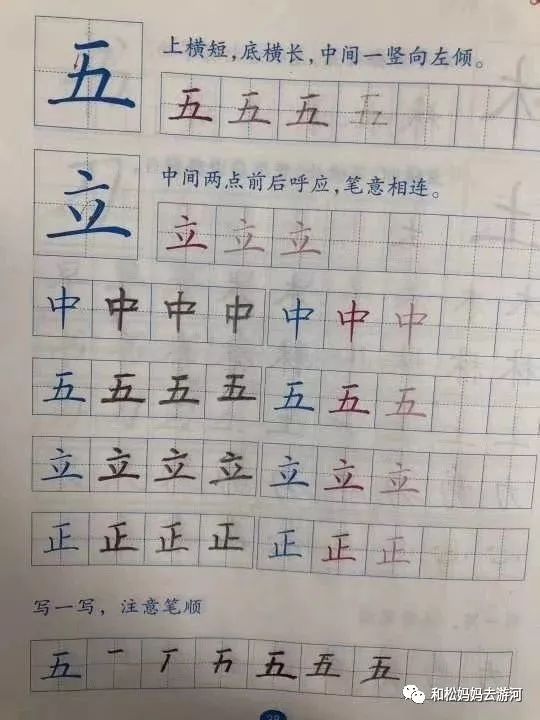 五
上横短，底横长，中间一竖向左倾。
五 五 五 五
立
中间两点前后呼应，笔意相连。
立 立 立
中 中 中 中 中 中 中
五 五 五 五 五 五 五
立 立 立 立 立 立 立
正 正 正 正 正 正 正
写一写，注意笔顺
五 一 丅 五 五 五
和松妈妈去游河